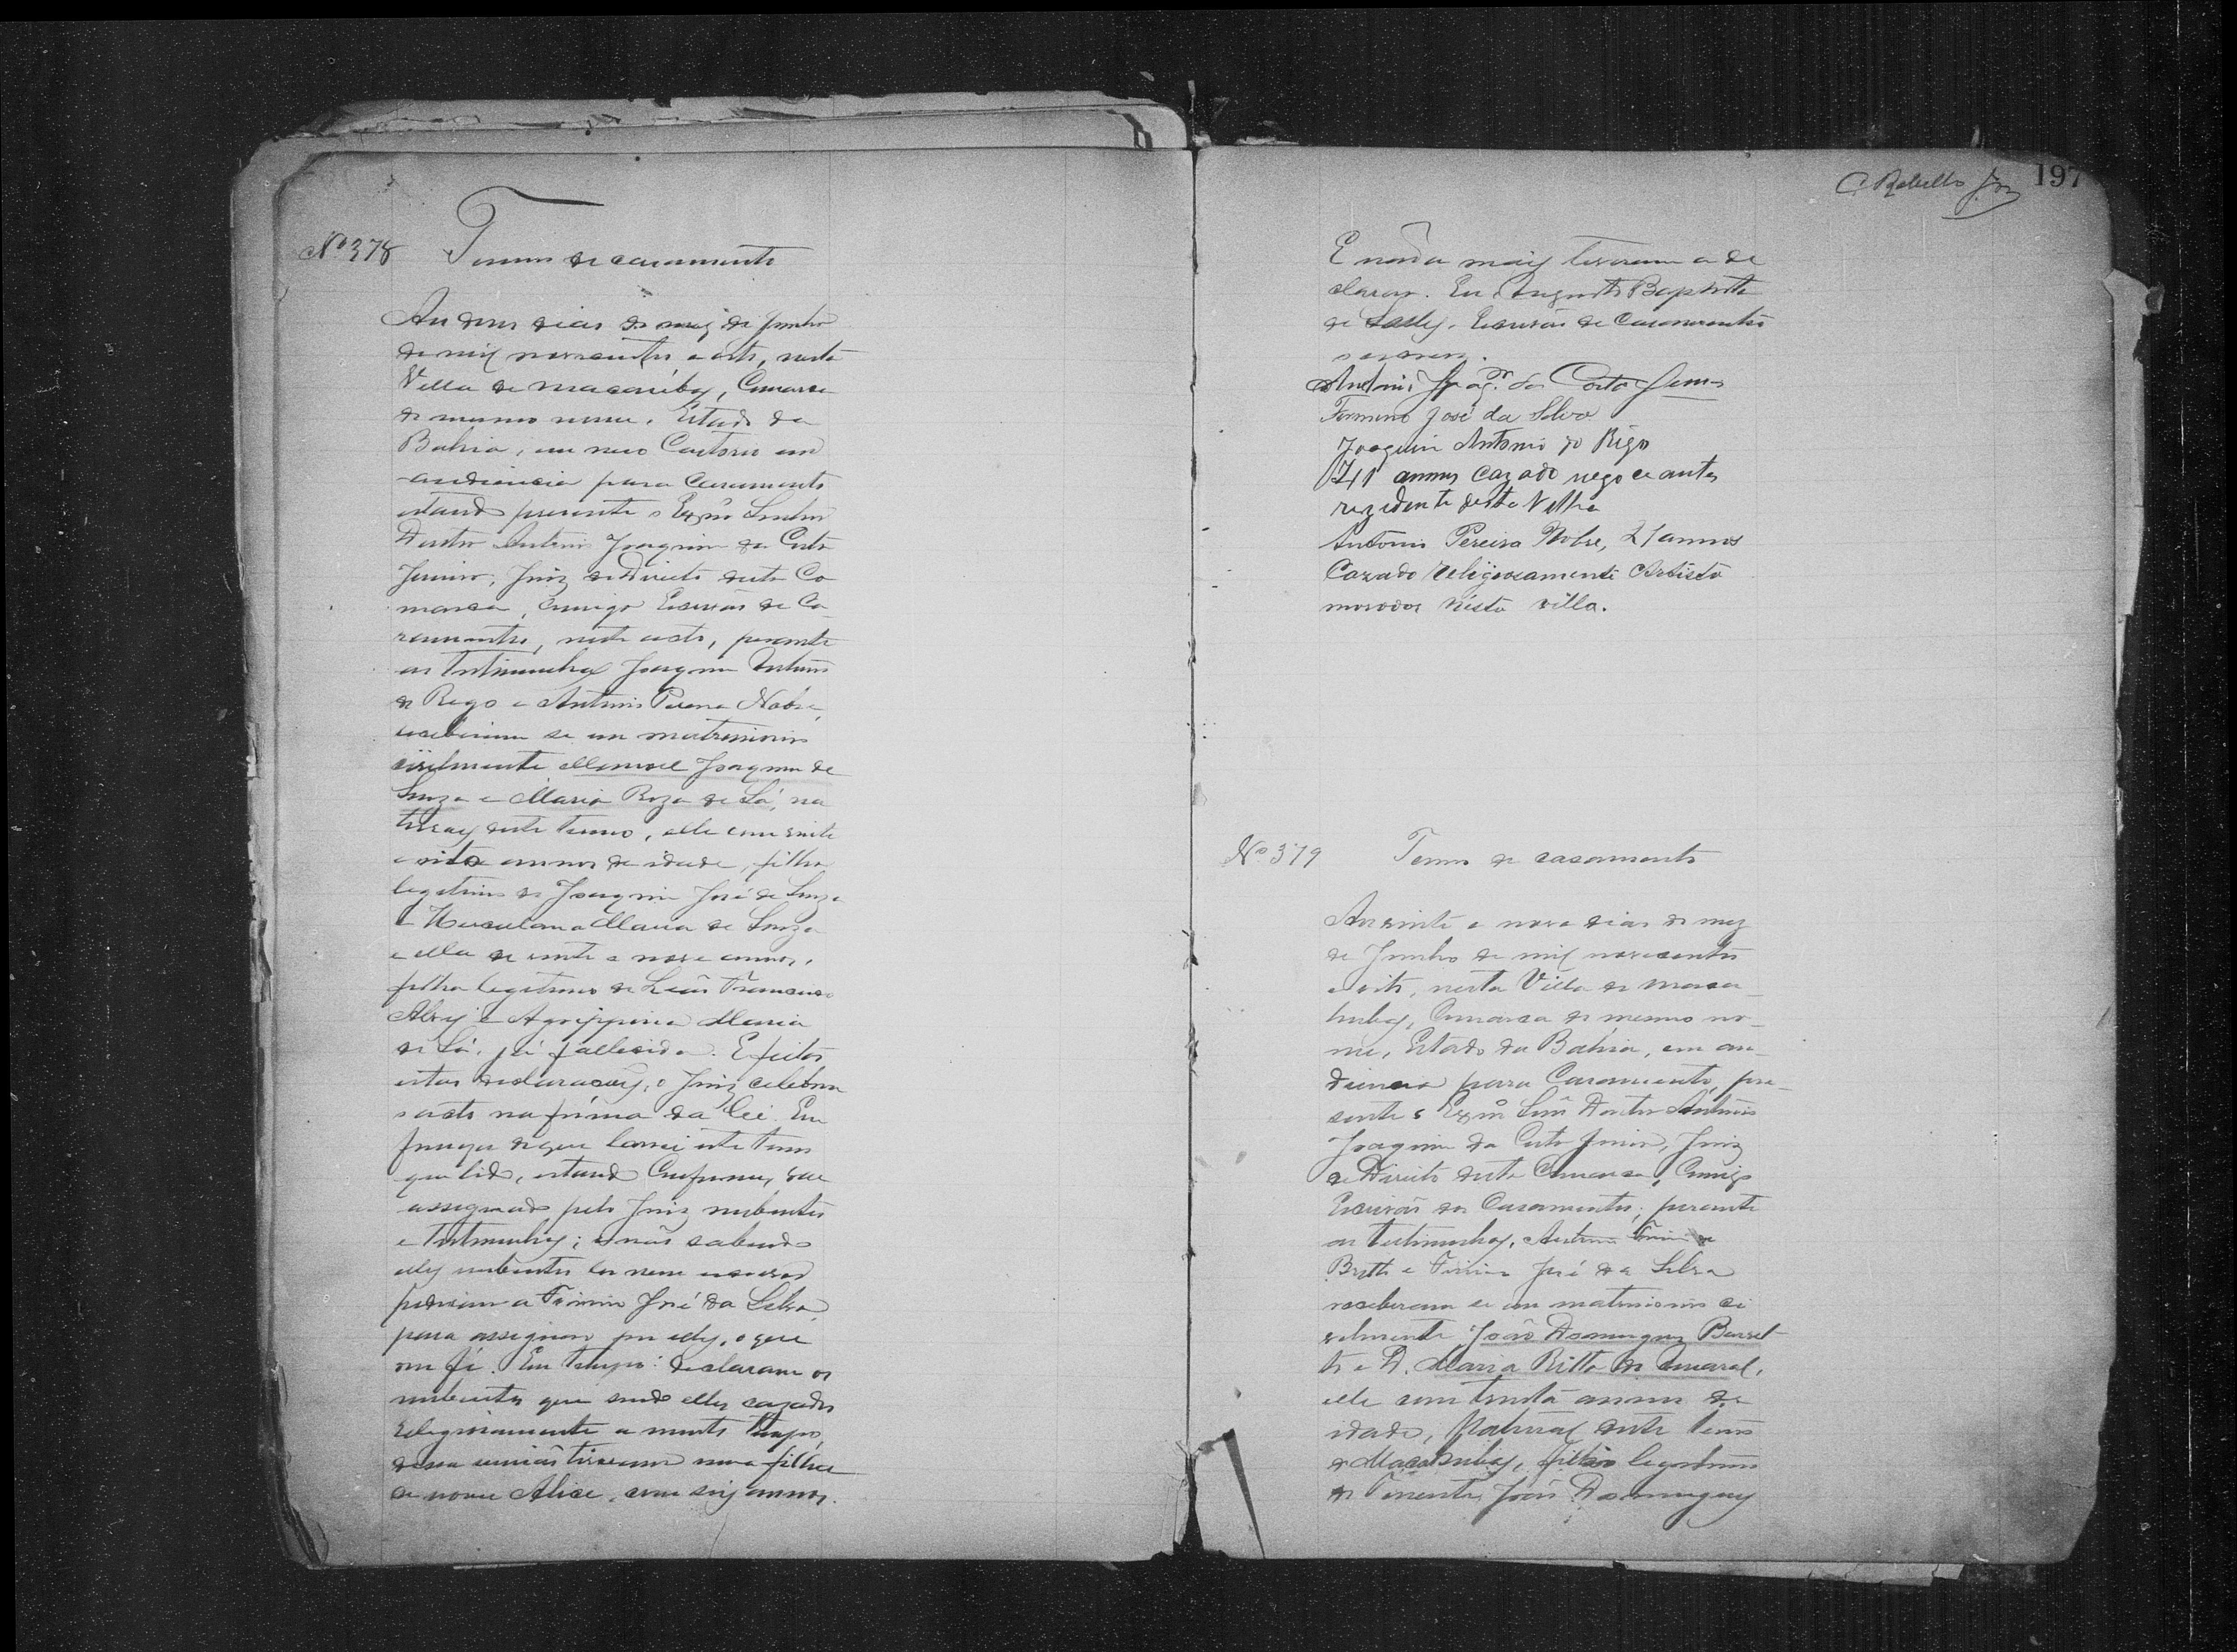 Nº 378 Termo de casamento
Aos dous dias do mez de Junho
de mil novecentos e oito, nesta
Villa de Macaúbas, Comarca
do mesmo nome, Estado da
Bahia, em meo Cartorio em
audiencia para Casamento
estando presente o Exmo Senhor
Doutor Antonio Joaquim da Costa
Junior, Juiz de Direito desta Co
marca, comigo Escrivão de Ca
zamentos, neste acto, perante
as testimunhas Joaquim Antonio
do Rego e Antonio Pereira Nobre,
receberam se em matrimonio
civilmente Manoel Joaquim de
Souza e Maria Roza de Sá, na
turaes deste termo, elle com vinte
e oito annos de idade, filho
legitimo de Joaquim José de Souza
e Herculana Maria de Souza
e ella de vinte e nove annos,
filha legitima de Leão Francisco
Alves e Agrippina Maria
de Sá, já fallecida. E feitas
estas declarações, o Juiz celebrou
o acto na fórma da lei. Em
firmeza do que lavrei este termo
que lido, estando conforme, vae
assignado pelo Juiz nubentes
e testimunhas; e não sabendo
elles nubentes ler nem escrever
pediram a Firmino José da Silva,
para assignar por elles, o que
dou fé. Em tempo: declararam os
nubentes que sendo elles cazados
religiosamente a muito tempo,
dessa união tiveram uma filha
de nome Alice, com seis annos.
C. Rabello Jor 197
E nada mais tiveram a de
clarar. Eu Augusto Baptista
de Salles, Escrivão de Casamentos
o escrevi.
Antonio Joaqm da Costa Junior
Firmino José da Silva
Joaquim Antonio do Rêgo
41 annos cazado negoceante
rezidente desta Villa
Antonio Pereira Nobre, 21 annos
Cazado religiosamente Artista
morador nésta villa.
Nº 379 Termo de casamento
Aos vinte e nove dias do mez
de Junho de mil novecentos
e oito, nesta Villa de Maca-
hubas, Comarca do mesmo no-
me, Estado da Bahia, em au-
diencia para Casamento, pre-
sente o Exmo Senr Doutor Antonio
Joaquim da Costa Junior, Juiz
de Direito desta Comarca, Comigo
Escrivão dos Casamentos, perante
as testimunhas, Antonio
Britto e Firmino José da Silva
receberam se em matrimonio ci
vilmente João Domingues Barret-
to e D. Maria Ritta do Amaral,
elle com trinta annos de
idade, Natural deste termo
de Macahubas, filho legitimo
do Tenente João Domingues